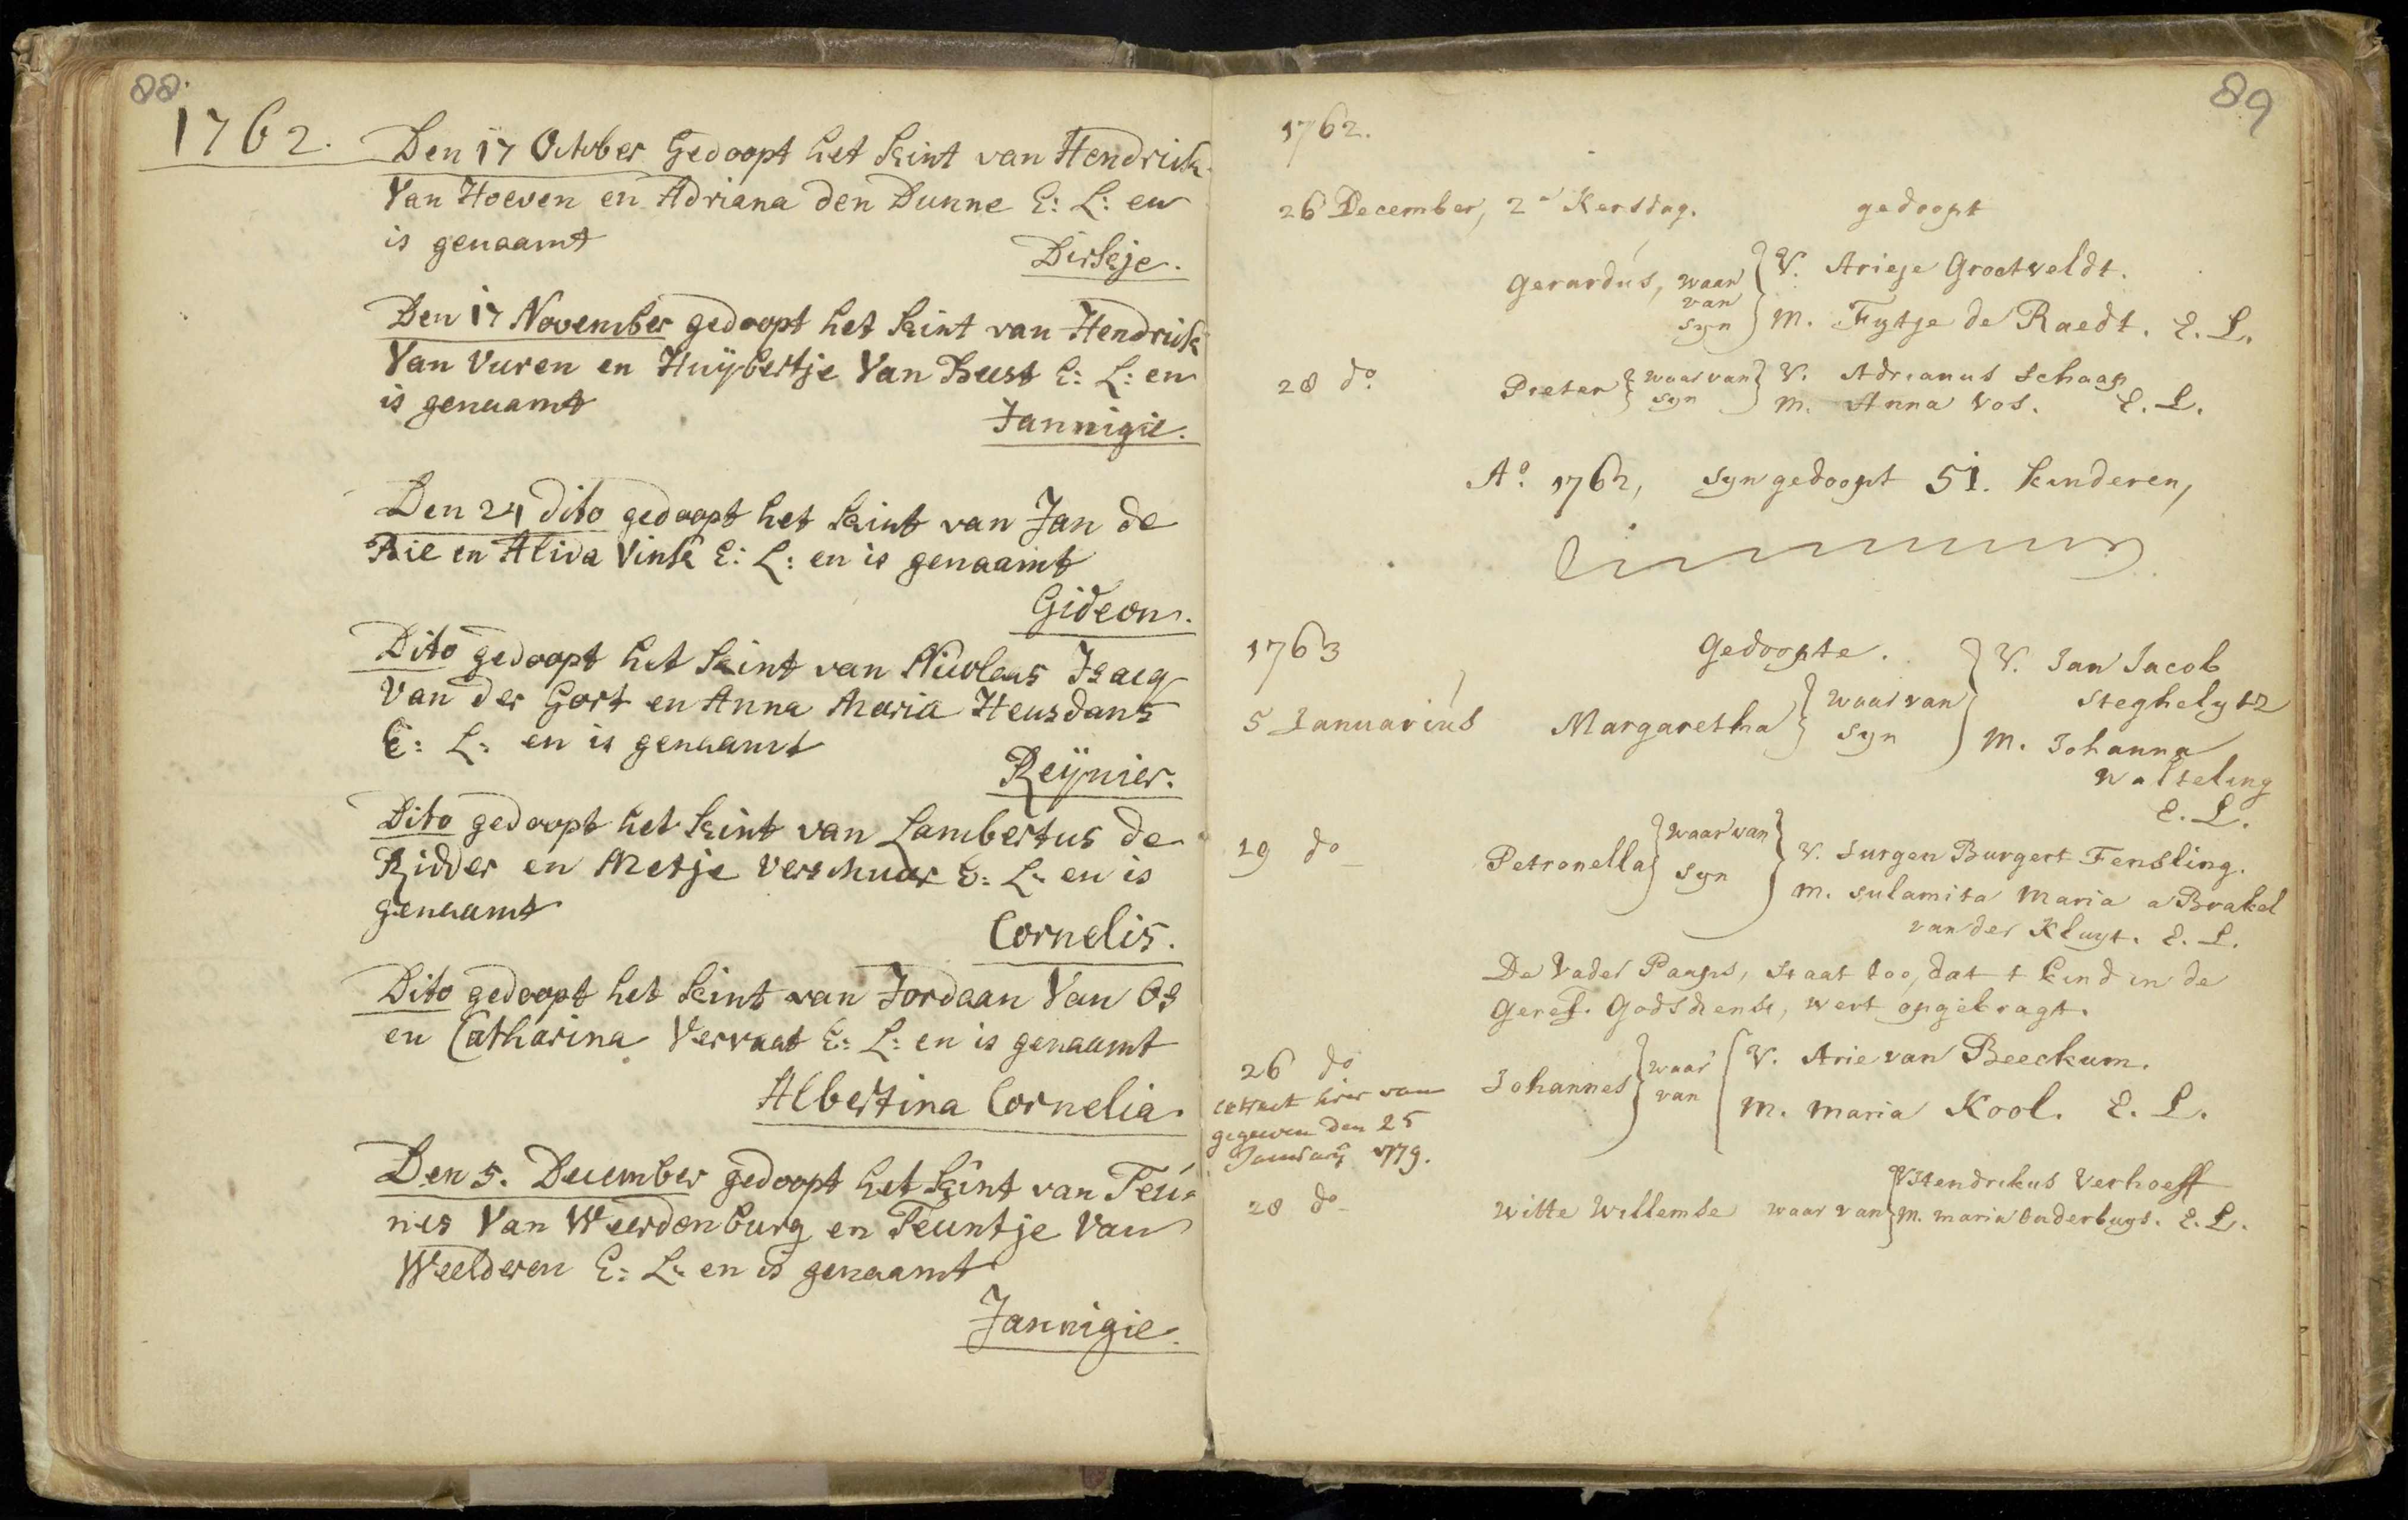 88.
1762.
Den 17 October Gedoopt het kint van Hendrick
Van Hoeven en Adriana den Dunne E: L: en
is genaamt
Dirkje.
Den 17 November gedoopt het kint van Hendrick
Van Vuren en Huÿbertje Van Beest E: L: en
is genaamt
Jannigie.
Den 24 dito gedoopt het kint van Jan de
Rie en Alida Vink E: L: en is genaamt
Gideon.
Dito gedoopt het kint van Nicolaas Isacq
Van der Gort en Anna Maria Heusdans
E: L: en is genaamt
Reÿnier.
Dito gedoopt het kint van Lambertus de
Ridder en Metje Verschuur E: L: en is
genaamt
Cornelis.
Dito gedoopt het kint van Jordaan Van Os
en Catharina Vervaat E: L: en is genaamt
Albertina Cornelia.
Den 5. December gedoopt het kint van Teu=
nis Van Weerdenburg en Teuntje Van
Weelderen E: L: en is genaamt
Jannigie.
89
1762.
26 December, 2e Kersdag. gedoopt
Gerardus, waar van syn V. Arieje Grootveldt.
M. Fytje de Raedt. E. L.
28 do. Pieter waar van syn V. Adrianus Schaap
M. Anna Vos. E. L.
Ao. 1762, syn gedoopt 51. kinderen,
1763 Gedoopte.
5 Januarius Margaretha waar van syn V. Jan Jacob
Steghelytz
M. Johanna
Walteling
E. L.
19 do Petronella waar van syn V. Jurgen Burgert Fensling.
M. Sulamita Maria a Brakel
van der Kluyt. E. L.
De Vader Paaps, staat toe, dat t kind in de
Geref. Godsdienst, wert opgebragt.
26 do Johannes waar van V. Arie van Beeckum.
M. Maria Kool. E. L.
extract hier van
gegeven den 25
January 1779.
28 do Witte Willemse waar van V. Hendrikus Verhoeff
M. Maria Onderbuys. E. L.